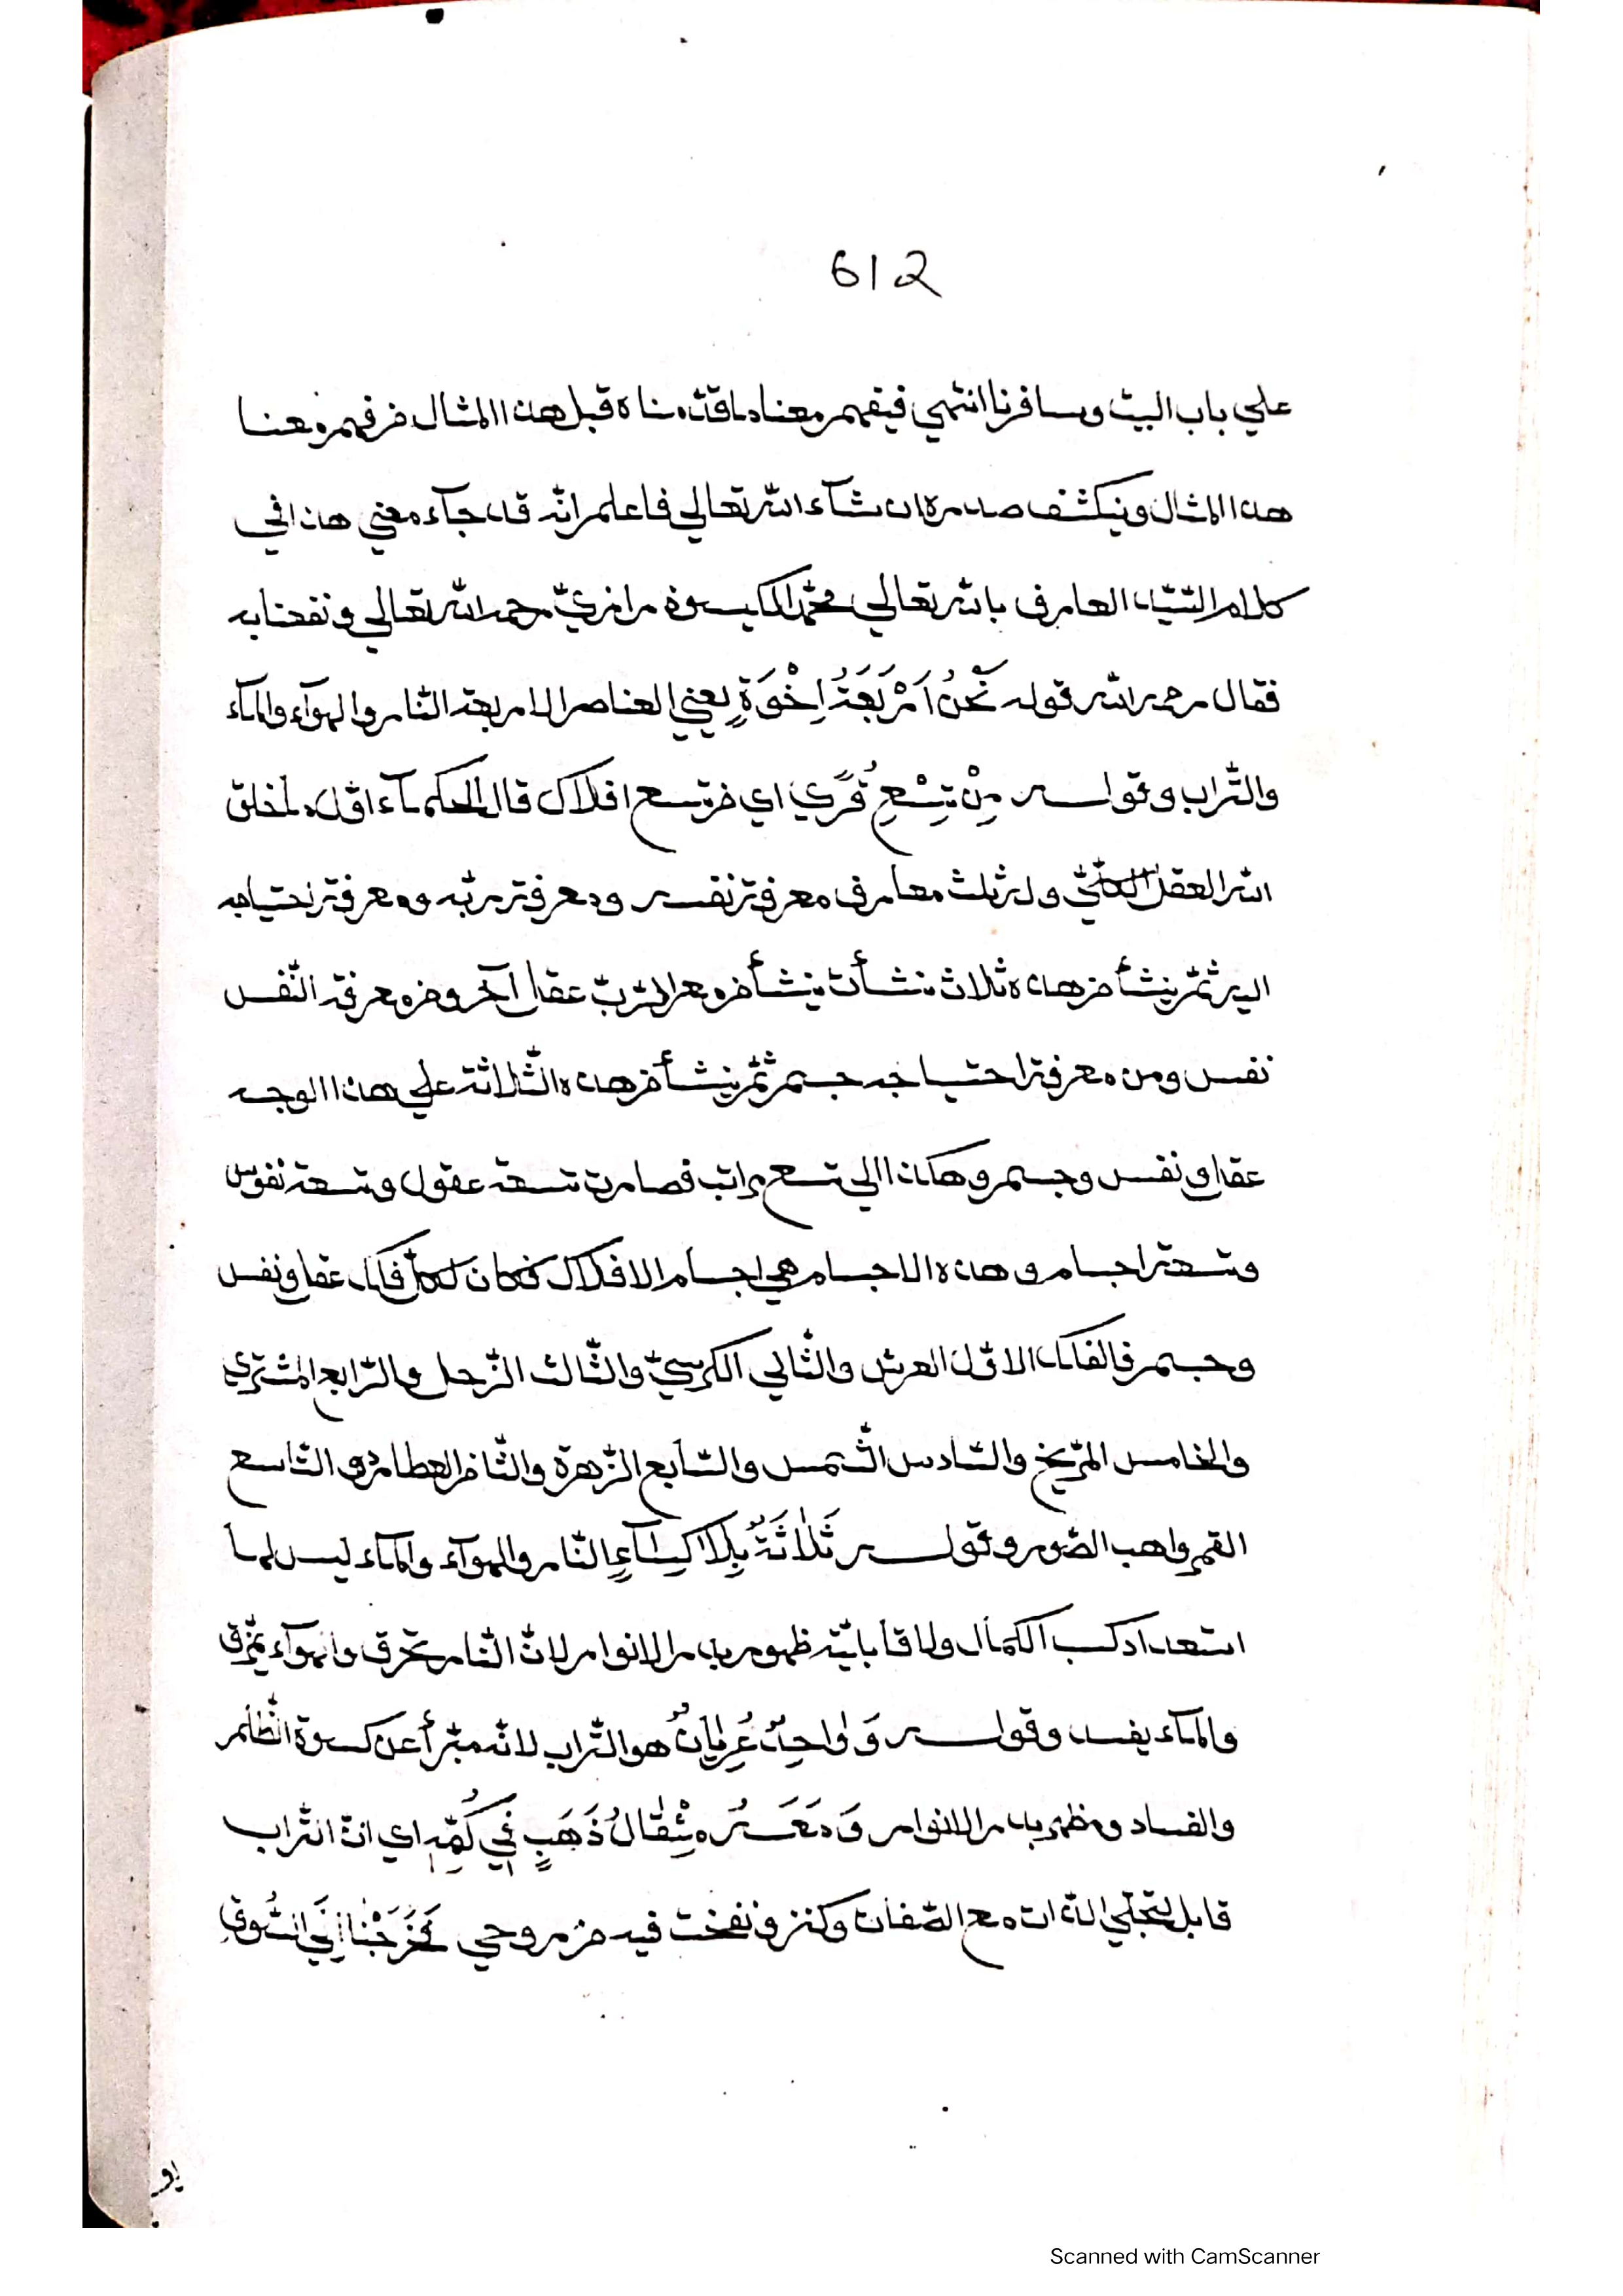 612
علي باب البيت وسافرنا انتهي فيفهم معناه ما قدمناه قبل هذا المثال فمن فهم معنا
هذا المثال وينكشف صدره ان شآء الله تعالي فاعلم انّه قد جآء معني هذا في
كلام السّيّد العارف بالله تعالي محمّد الكيسودرازيّ رحمه الله تعالي ونفعنا به
فقال رحمه الله قوله نَحْنُ اَرْبَعَةُ اِخْوَةٍ يعني العناصر الاربعة النّار والهوآء والمآء
والتّراب وقوله مِنْ تِسْعِ قُرًي اي من تسع افلاك قال الحكمآء اوّل ما خلق
الله العقل الكلّيّ وله ثلث معارف معرفة نفسه ومعرفة ربّه ومعرفة احتياجه
اليه ثمّ ينشأ من هذه ثلاث نشأت ينشأ من معرفة الربّ عقل آخر ومن معرفة النّفس
نفس ومن معرفة احتياجه جسم ثمّ ينشأ من هذه الثّلاثة علي هذا الوجه
عقل ونفس وجسم وهكذا الي تسع مراتب فصارت تسعة عقول وتسعة نفوس
وتسعة اجسام وهذه الاجسام هي اجسام الافلاك فكان لكلّ فلك عقل ونفس
وجسم فالفلك الاوّل العرش والثّاني الكرسيّ والثّالث الزّحل والرّابع المشتري
والخامس المرّيخ والسّادس الشّمس والسّابع الزّهرة والثّامن العطارد والتّاسع
القمر واهب الصّور وقوله ثَلٰاثَةٌ بِلَا كِسَآءٍ النّار والهوآء والمآء ليس لها
استعداد كسب الكمال ولا قابليّة ظهور بدر الانوار لانّ النّار تحرق والهوآء يمزّق
والمآء يفسد وقوله وَ وٰاحِدٌ عُرِيٰانٌ هو التّراب لانّه مبرّأ عن كسوة الظّلم
والفساد ومظهر بدر الانوار وَ مَعَهُ مِثْقٰالُ ذَهَبٍ فِي كُمِّهِ اي انّ التّراب
قابل لتجلّي الذّات مع الصّفات وكنز ونفخت فيه من روحي فَخَرَجْنٰا اِلَي السُّوقِ